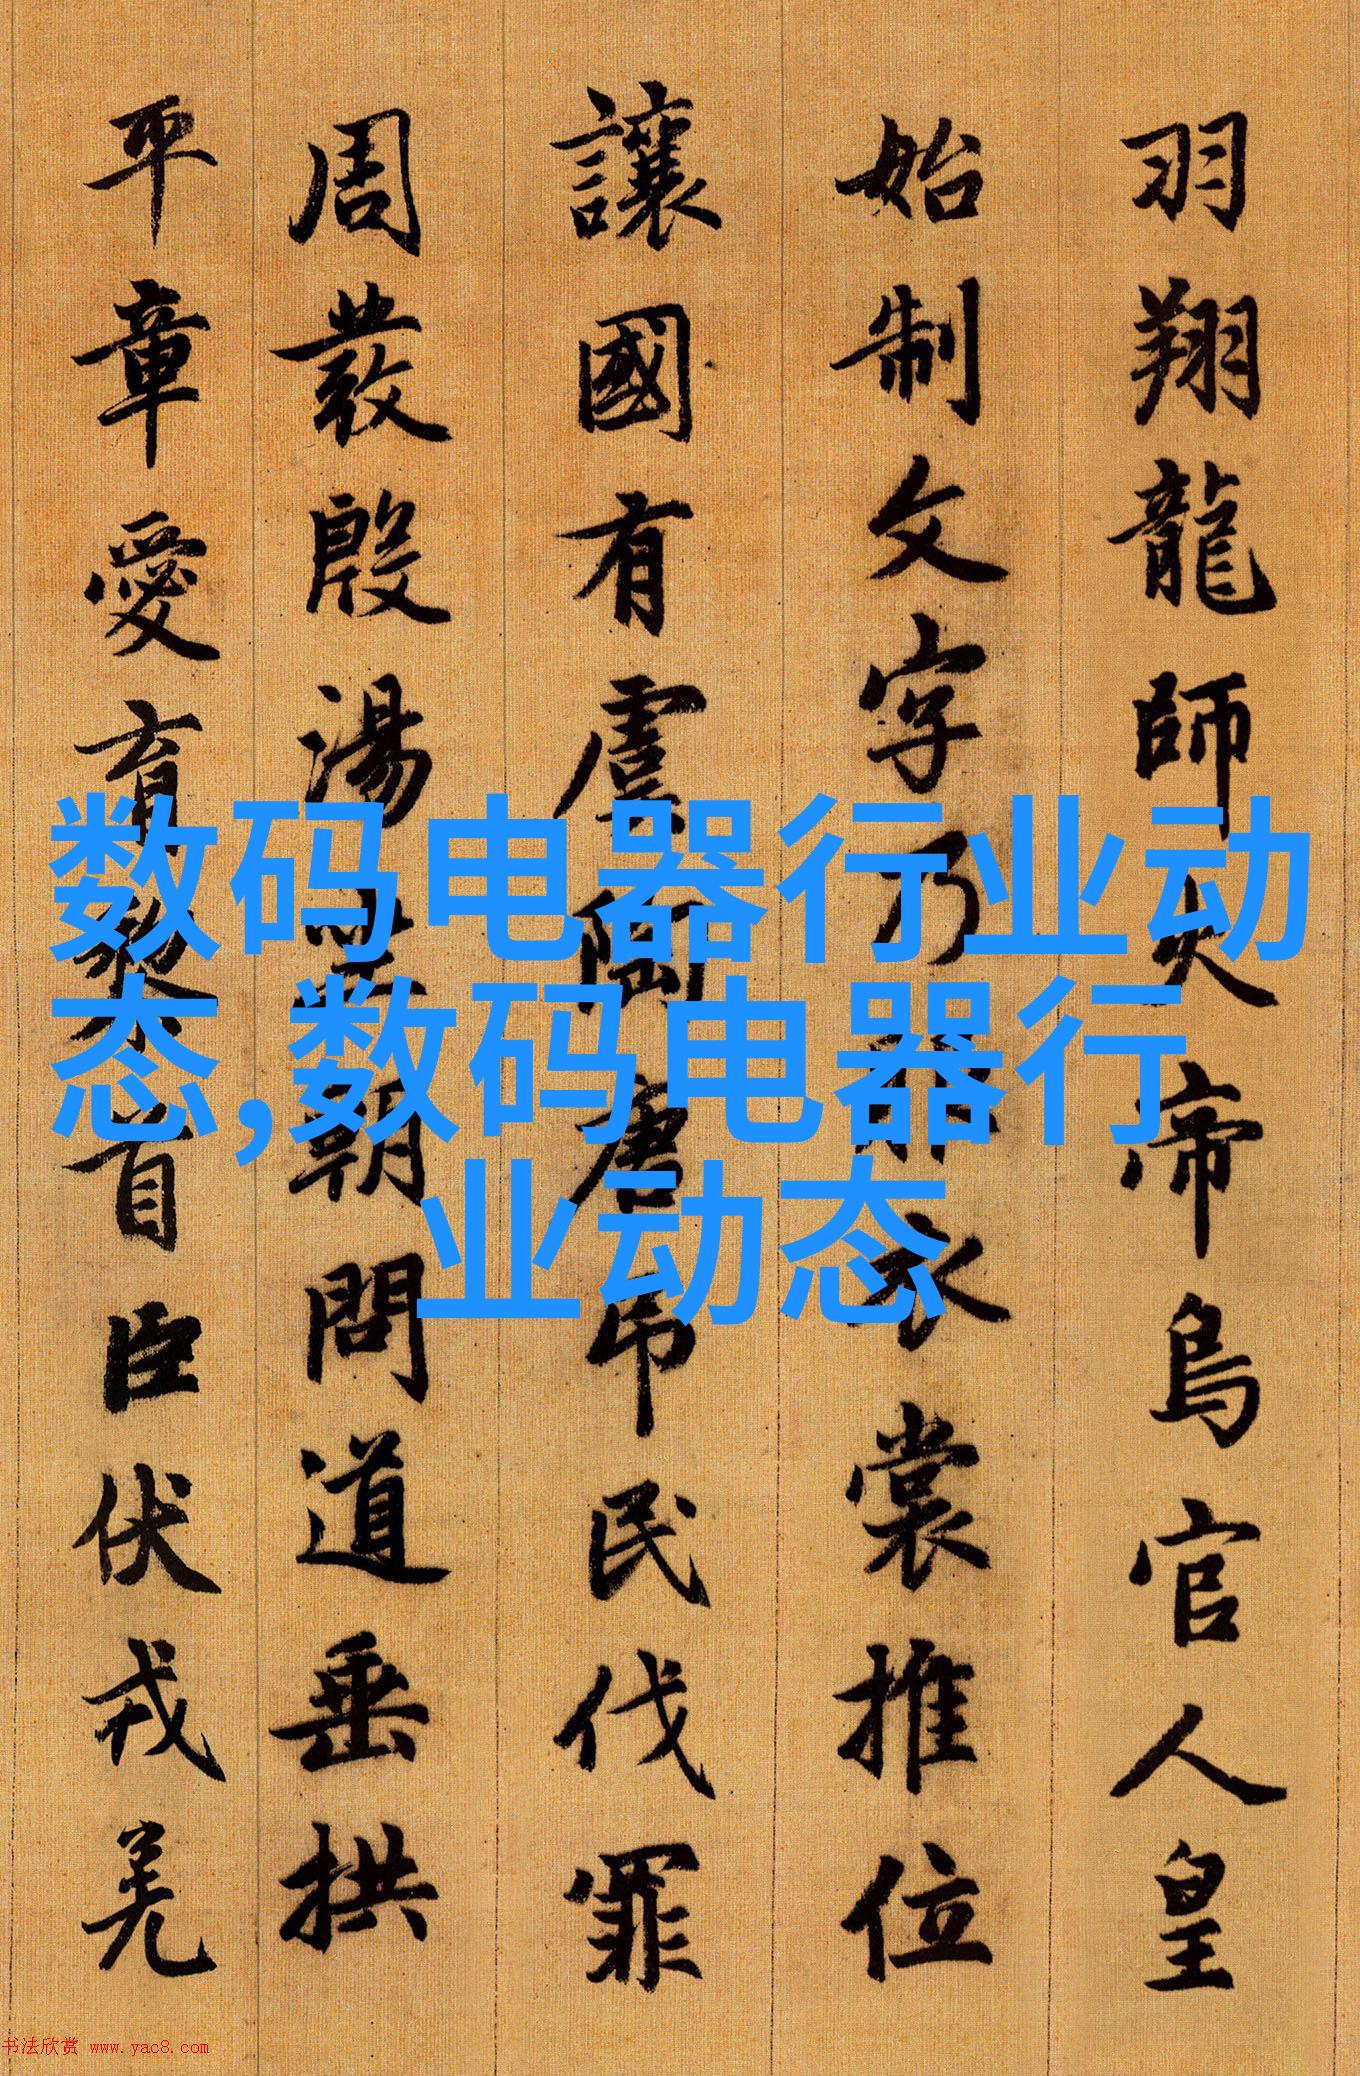 羽翔龍師火帝鳥官人皇
始制文字乃服衣裳推位
讓國有虞陶唐吊民伐罪
周發殷湯坐朝問道垂拱
平章愛育黎首臣伏戎羌
数码电器行业动
态,数码电器行
业动态
书法欣赏 www.yac8.com